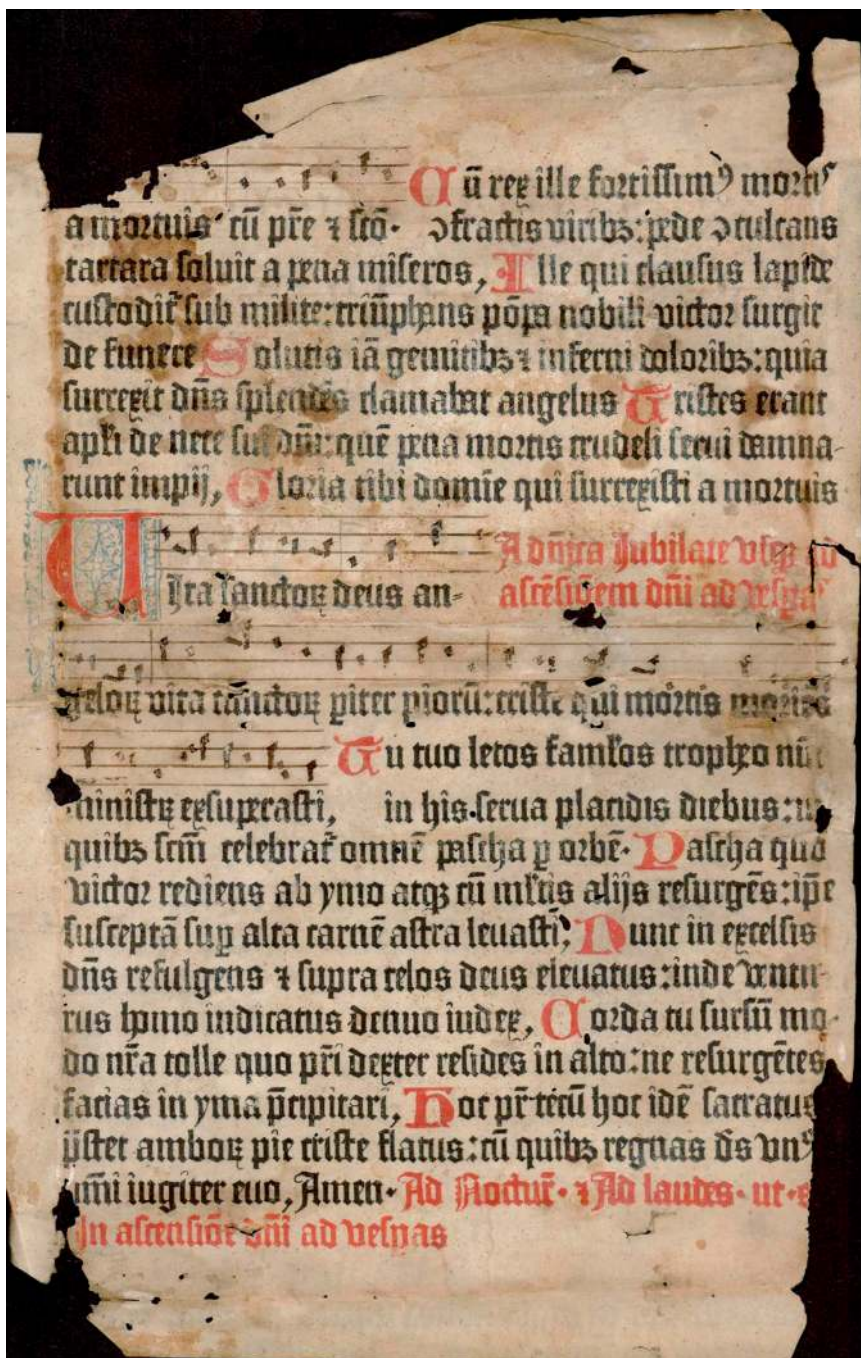 Cū rex ille fortissimꝰ mortis
a mortuis· cū pr̄e ⁊ sc̄o· ꝯfractis viribꝫ: pede ꝯculcans
tartara soluit a pena miseros, Ille qui clausus lapide
custodit᷑ sub milite: triūphans pōpa nobili victor surgit
de funere Solutis iā gemitibꝫ ⁊ inferni doloribꝫ: quia
surrexit dn̄s splendēs clamabat angelus Tristes erant
apl̄i de nece sui dn̄i: quē pena mortis crudeli serui damna-
runt impij, Gloria tibi domīe qui surrexisti a mortuis
A dn̄ica Jubilate vsqꝫ ad
Uita sanctoꝝ deus an- ascēsionem dn̄i ad vesꝑas
geloꝝ vita cūnctoꝝ ꝑiter piorū: criste qui mortis
Tu tuo letos faml̄os tropheo
ministꝝ exsuperasti, in his serua placidis diebus: in
quibꝫ scm̄ celebrat᷑ omnē pascha ꝑ orbē· Pascha quo
victor rediens ab ymo atqꝫ cū alijs resurgēs: ip̄e
susceptā suꝑ alta carnē astra leuasti, Nunc in excelsis
dn̄s refulgens ⁊ supra celos deus eleuatus: inde ventu-
rus homo indicatus denuo iudex, Corda tu sursū mo-
do nr̄a tolle quo pr̄i dexter resides in alto: ne resurgētes
facias in yma p̄cipitari, Hoc pr̄ tecū hoc idē sacratus
p̄stet amboꝝ pie criste flatus: cū quibꝫ regnas ds̄ vnꝰ
om̄i iugiter euo, Amen· Ad Noctur̄· ⁊ Ad laudes· ut·
In ascensiōe dn̄i ad vesꝑas